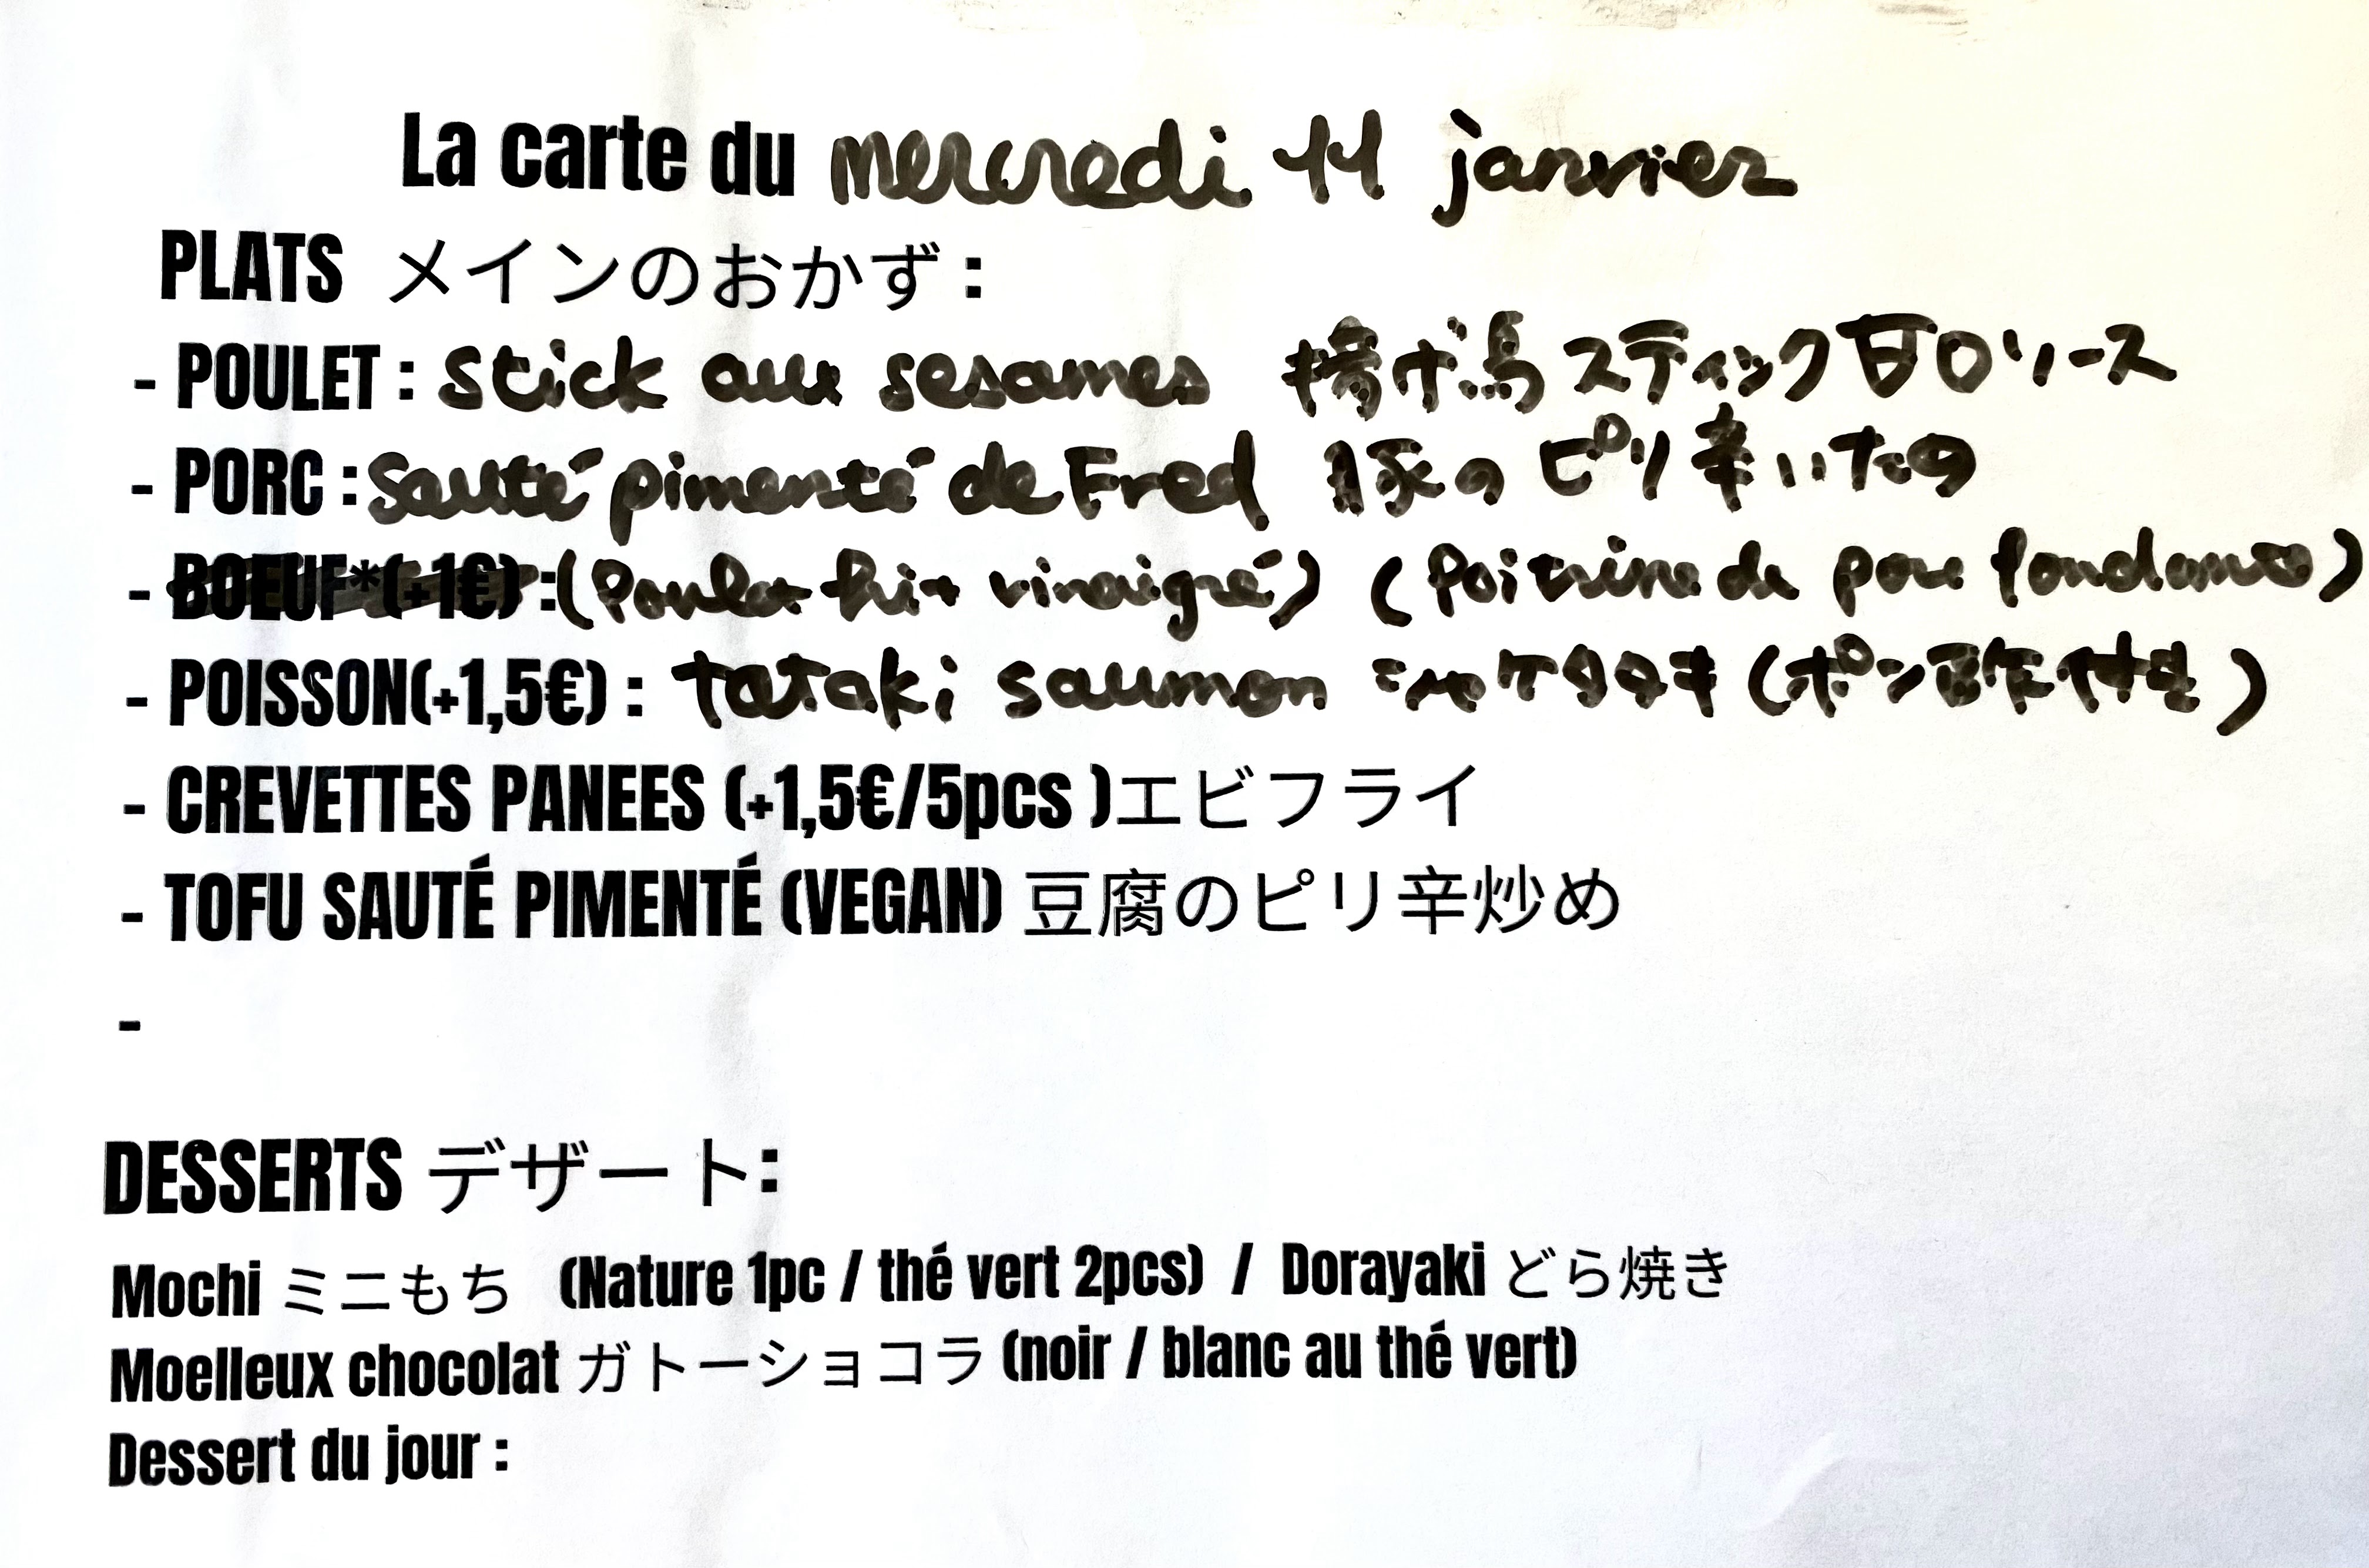 La carte du mercredi 11 janvier
PLATS メインのおかず :
- POULET : Stick aux sesames 揚げ鳥スティック甘口ソース
- PORC : Sauté pimenté de Fred 豚のピリ辛いため
- BOEUF*(+1€) : (Poulet frit vinaigré) (Poitrine de porc fondante)
- POISSON(+1,5€) : tataki saumon シャケタタキ (ポン酢付き)
- CREVETTES PANEES (+1,5€/5pcs )エビフライ
- TOFU SAUTÉ PIMENTÉ (VEGAN) 豆腐のピリ辛炒め
-
DESSERTS デザート:
Mochi ミニもち (Nature 1pc / thé vert 2pcs) / Dorayaki どら焼き
Moelleux chocolat ガトーショコラ (noir / blanc au thé vert)
Dessert du jour :